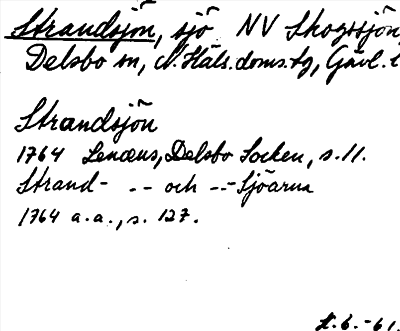 Strandsjön, sjö NV Skogssjön
Delsbo sn, N. Häls. doms.tg, Gävl. l
Strandsjön
1764 Lenæus, Delsbo Socken, s. 11.
Strand- - - och - - - Sjöarna
1764 a.a., s. 127.
H. 6. -61.